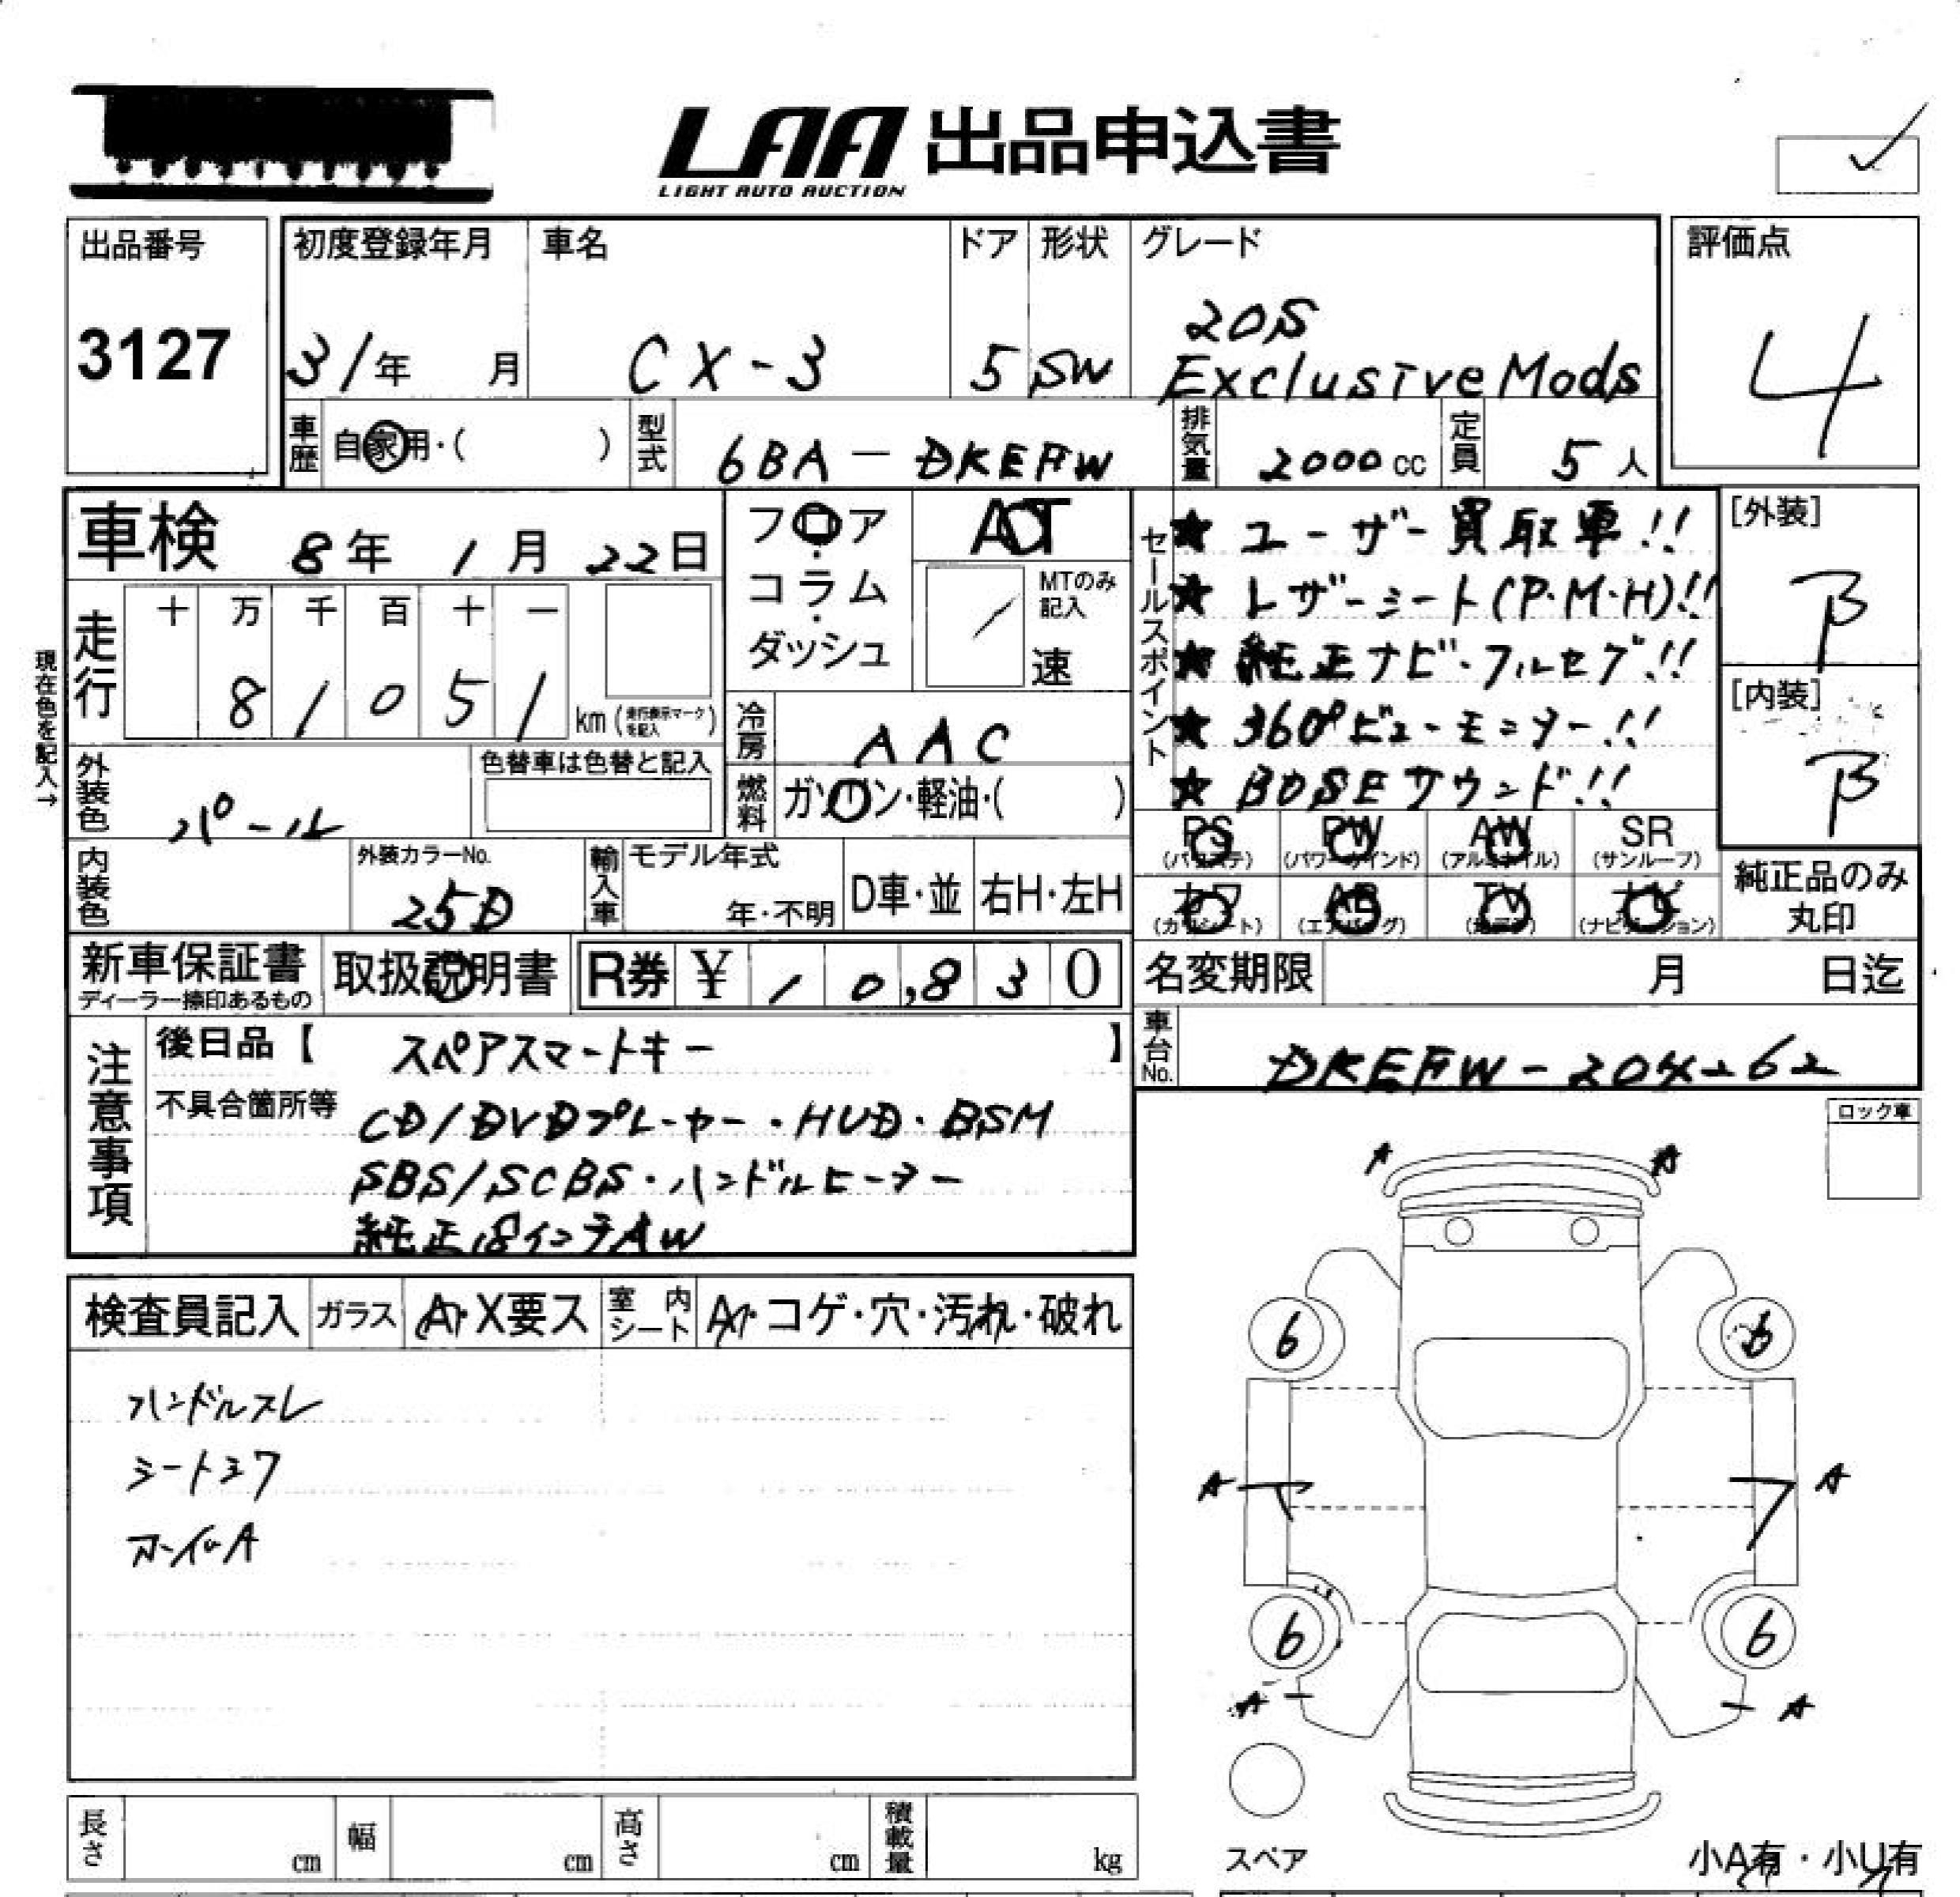 LAA 出品申込書
LIGHT AUTO AUCTION
出品番号
3127
初度登録年月
31年 月
車名
CX-3
ドア
5
形状
SW
グレード
20S
Exclusive Mods
評価点
4
車歴
自家用・( )
型式
6BA-DKEFW
排気量
2000cc
定員
5人
車検 8年 1月 22日
フロア
・
コラム
・
ダッシュ
AT
MTのみ
記入
速
セールスポイント
★ユーザー買取車!!
★レザーシート(P・M・H)!!
★純正ナビ・フルセグ!!
★360°ビューモニター!!
★BOSEサウンド!!
[外装]
B
[内装]
B
現在色を記入→
走行
十 万 千 百 十 一
8 1 0 5 1
km(走行表示マークを記入)
冷房
AAC
外装色
パール
色替車は色替と記入
燃料
ガソリン・軽油・( )
PS
(パワステ)
PW
(パワーウインド)
AW
(アルミホイル)
SR
(サンルーフ)
内装色
外装カラーNo.
25D
輸入車
モデル年式
年・不明
D車・並
右H・左H
カワ
(カワシート)
AB
(エアバッグ)
TV
ナビ
(ナビゲーション)
純正品のみ
丸印
新車保証書
ディーラー捺印あるもの
取扱説明書
R券 ¥ 10,830
名変期限 月 日迄
車台No.
注意事項
後日品【 スペアスマートキー 】
不具合箇所等
CD/DVDプレーヤー・HUD・BSM
SBS/SCBS・ハンドルヒーター
純正18インチAW
ロック車
検査員記入
ガラス
A・X要ス
室内シート
A・コゲ・穴・汚れ・破れ
ハンドルスレ
シートシワ
A A
6 6
A A
6 6
A A
長さ cm
幅 cm
高さ cm
積載量 kg
スペア
小A有・小U有